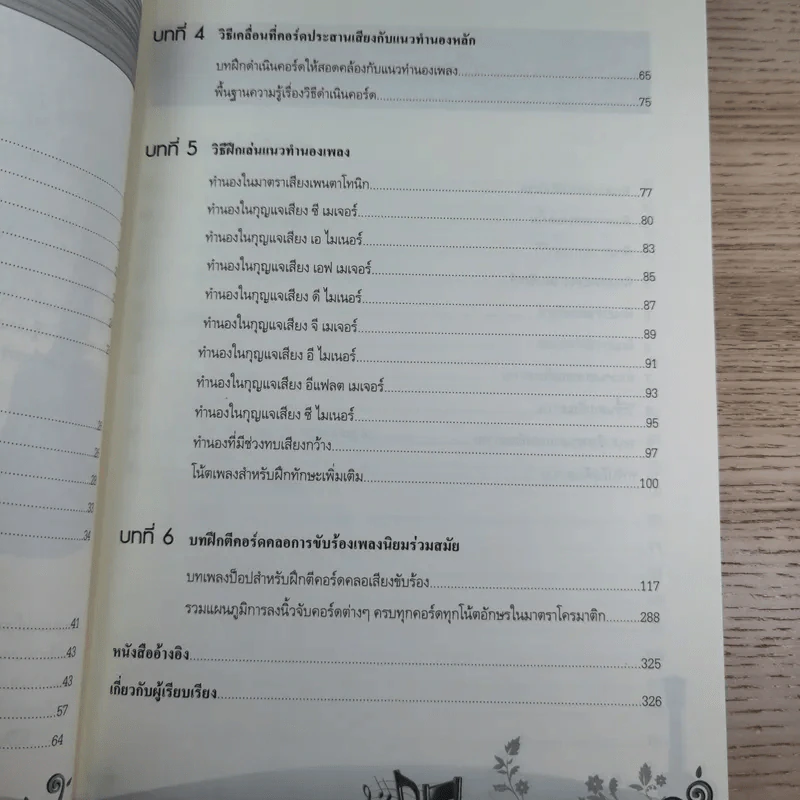 บทที่ 4 วิธีเคลื่อนที่คอร์ดประสานเสียงกับแนวทำนองหลัก
บทฝึกดำเนินคอร์ดให้สอดคล้องกับแนวทำนองเพลง 65
พื้นฐานความรู้เรื่องวิธีดำเนินคอร์ด 75
บทที่ 5 วิธีฝึกเล่นแนวทำนองเพลง
ทำนองในมาตราเสียงเพนตาโทนิก 77
ทำนองในกุญแจเสียง ซี เมเจอร์ 80
ทำนองในกุญแจเสียง เอ ไมเนอร์ 83
ทำนองในกุญแจเสียง เอฟ เมเจอร์ 85
ทำนองในกุญแจเสียง ดี ไมเนอร์ 87
ทำนองในกุญแจเสียง จี เมเจอร์ 89
ทำนองในกุญแจเสียง อี ไมเนอร์ 91
ทำนองในกุญแจเสียง อีแฟลต เมเจอร์ 93
ทำนองในกุญแจเสียง ซี ไมเนอร์ 95
ทำนองที่มีช่วงทบเสียงกว้าง 97
โน้ตเพลงสำหรับฝึกทักษะเพิ่มเติม 100
บทที่ 6 บทฝึกตีคอร์ดคลอการขับร้องเพลงนิยมร่วมสมัย
บทเพลงป็อปสำหรับฝึกตีคอร์ดคลอเสียงขับร้อง 117
รวมแผนภูมิการลงนิ้วจับคอร์ดต่างๆ ครบทุกคอร์ดทุกโน้ตอักษรในมาตราโครมาติก 288
หนังสืออ้างอิง 325
เกี่ยวกับผู้เรียบเรียง 326
28
33
34
41
43
43
57
64